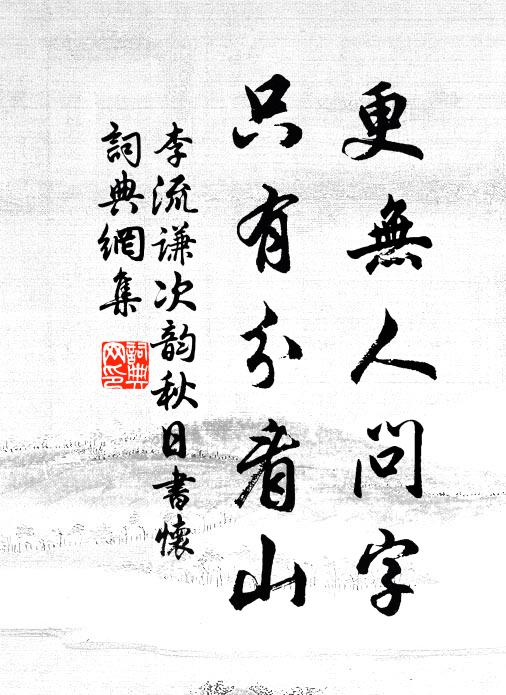 更無人問字
只有分看山
李流謙次韵秋日書懷
詞典網集
詞典网印